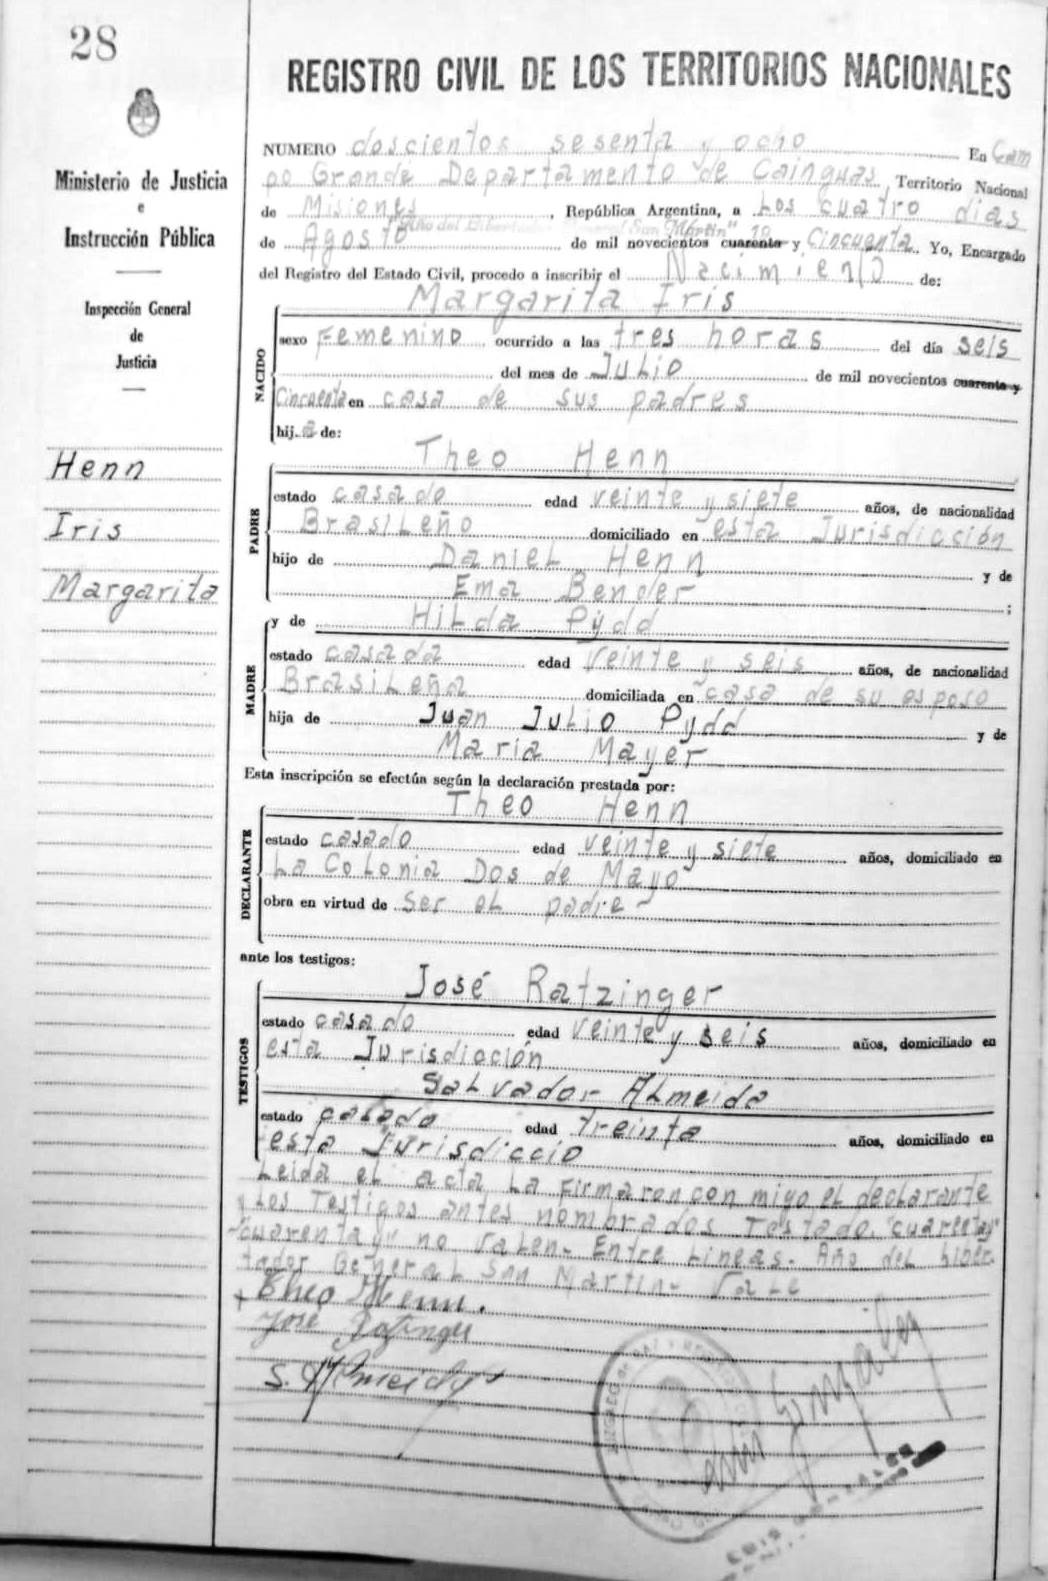 28
Ministerio de Justicia
e
Instrucción Pública
Inspección General
de
Justicia
Henn
Iris
Margarita
REGISTRO CIVIL DE LOS TERRITORIOS NACIONALES
NUMERO doscientos sesenta y ocho En Cam
po Grande Departamento de Cainguas, Territorio Nacional
de Misiones, República Argentina, a Los cuatro dias
"Año del Libertador General San Martin" 19
de Agosto de mil novecientos cuarenta y Cincuenta. Yo, Encargado
del Registro del Estado Civil, procedo a inscribir el Nacimiento de:
NACIDO
Margarita Iris
sexo Femenino ocurrido a las tres horas del día seis
del mes de Julio de mil novecientos cuarenta y
Cincuenta en casa de sus padres
hij.a de:
PADRE
Theo Henn
estado casado edad veinte y siete años, de nacionalidad
Brasileño domiciliado en esta Jurisdicción
hijo de Daniel Henn y de
Ema Bender ;
MADRE
y de Hilda Pydd
estado casada edad veinte y seis años, de nacionalidad
Brasileña domiciliada en casa de su esposo
hija de Juan Julio Pydd y de
Maria Mayer
Esta inscripción se efectúa según la declaración prestada por:
DECLARANTE
Theo Henn
estado casado edad veinte y siete años, domiciliado en
La Colonia Dos de Mayo
obra en virtud de ser el padre
ante los testigos:
TESTIGOS
José Ratzinger
estado casado edad veinte y seis años, domiciliado en
esta Jurisdioción
Salvador Almeida
estado casado edad treinta años, domiciliado en
esta Jurisdiccio
Leida el acta la firmaron con migo el declarante
y Los Testigos antes nombrados Testado. "cuarenta y"
"cuarenta y" no valen- Entre Lineas- Año del Liber-
tador General San Martin- Vale
+ Theo Henn.
José Ratzinger
S. Almeida